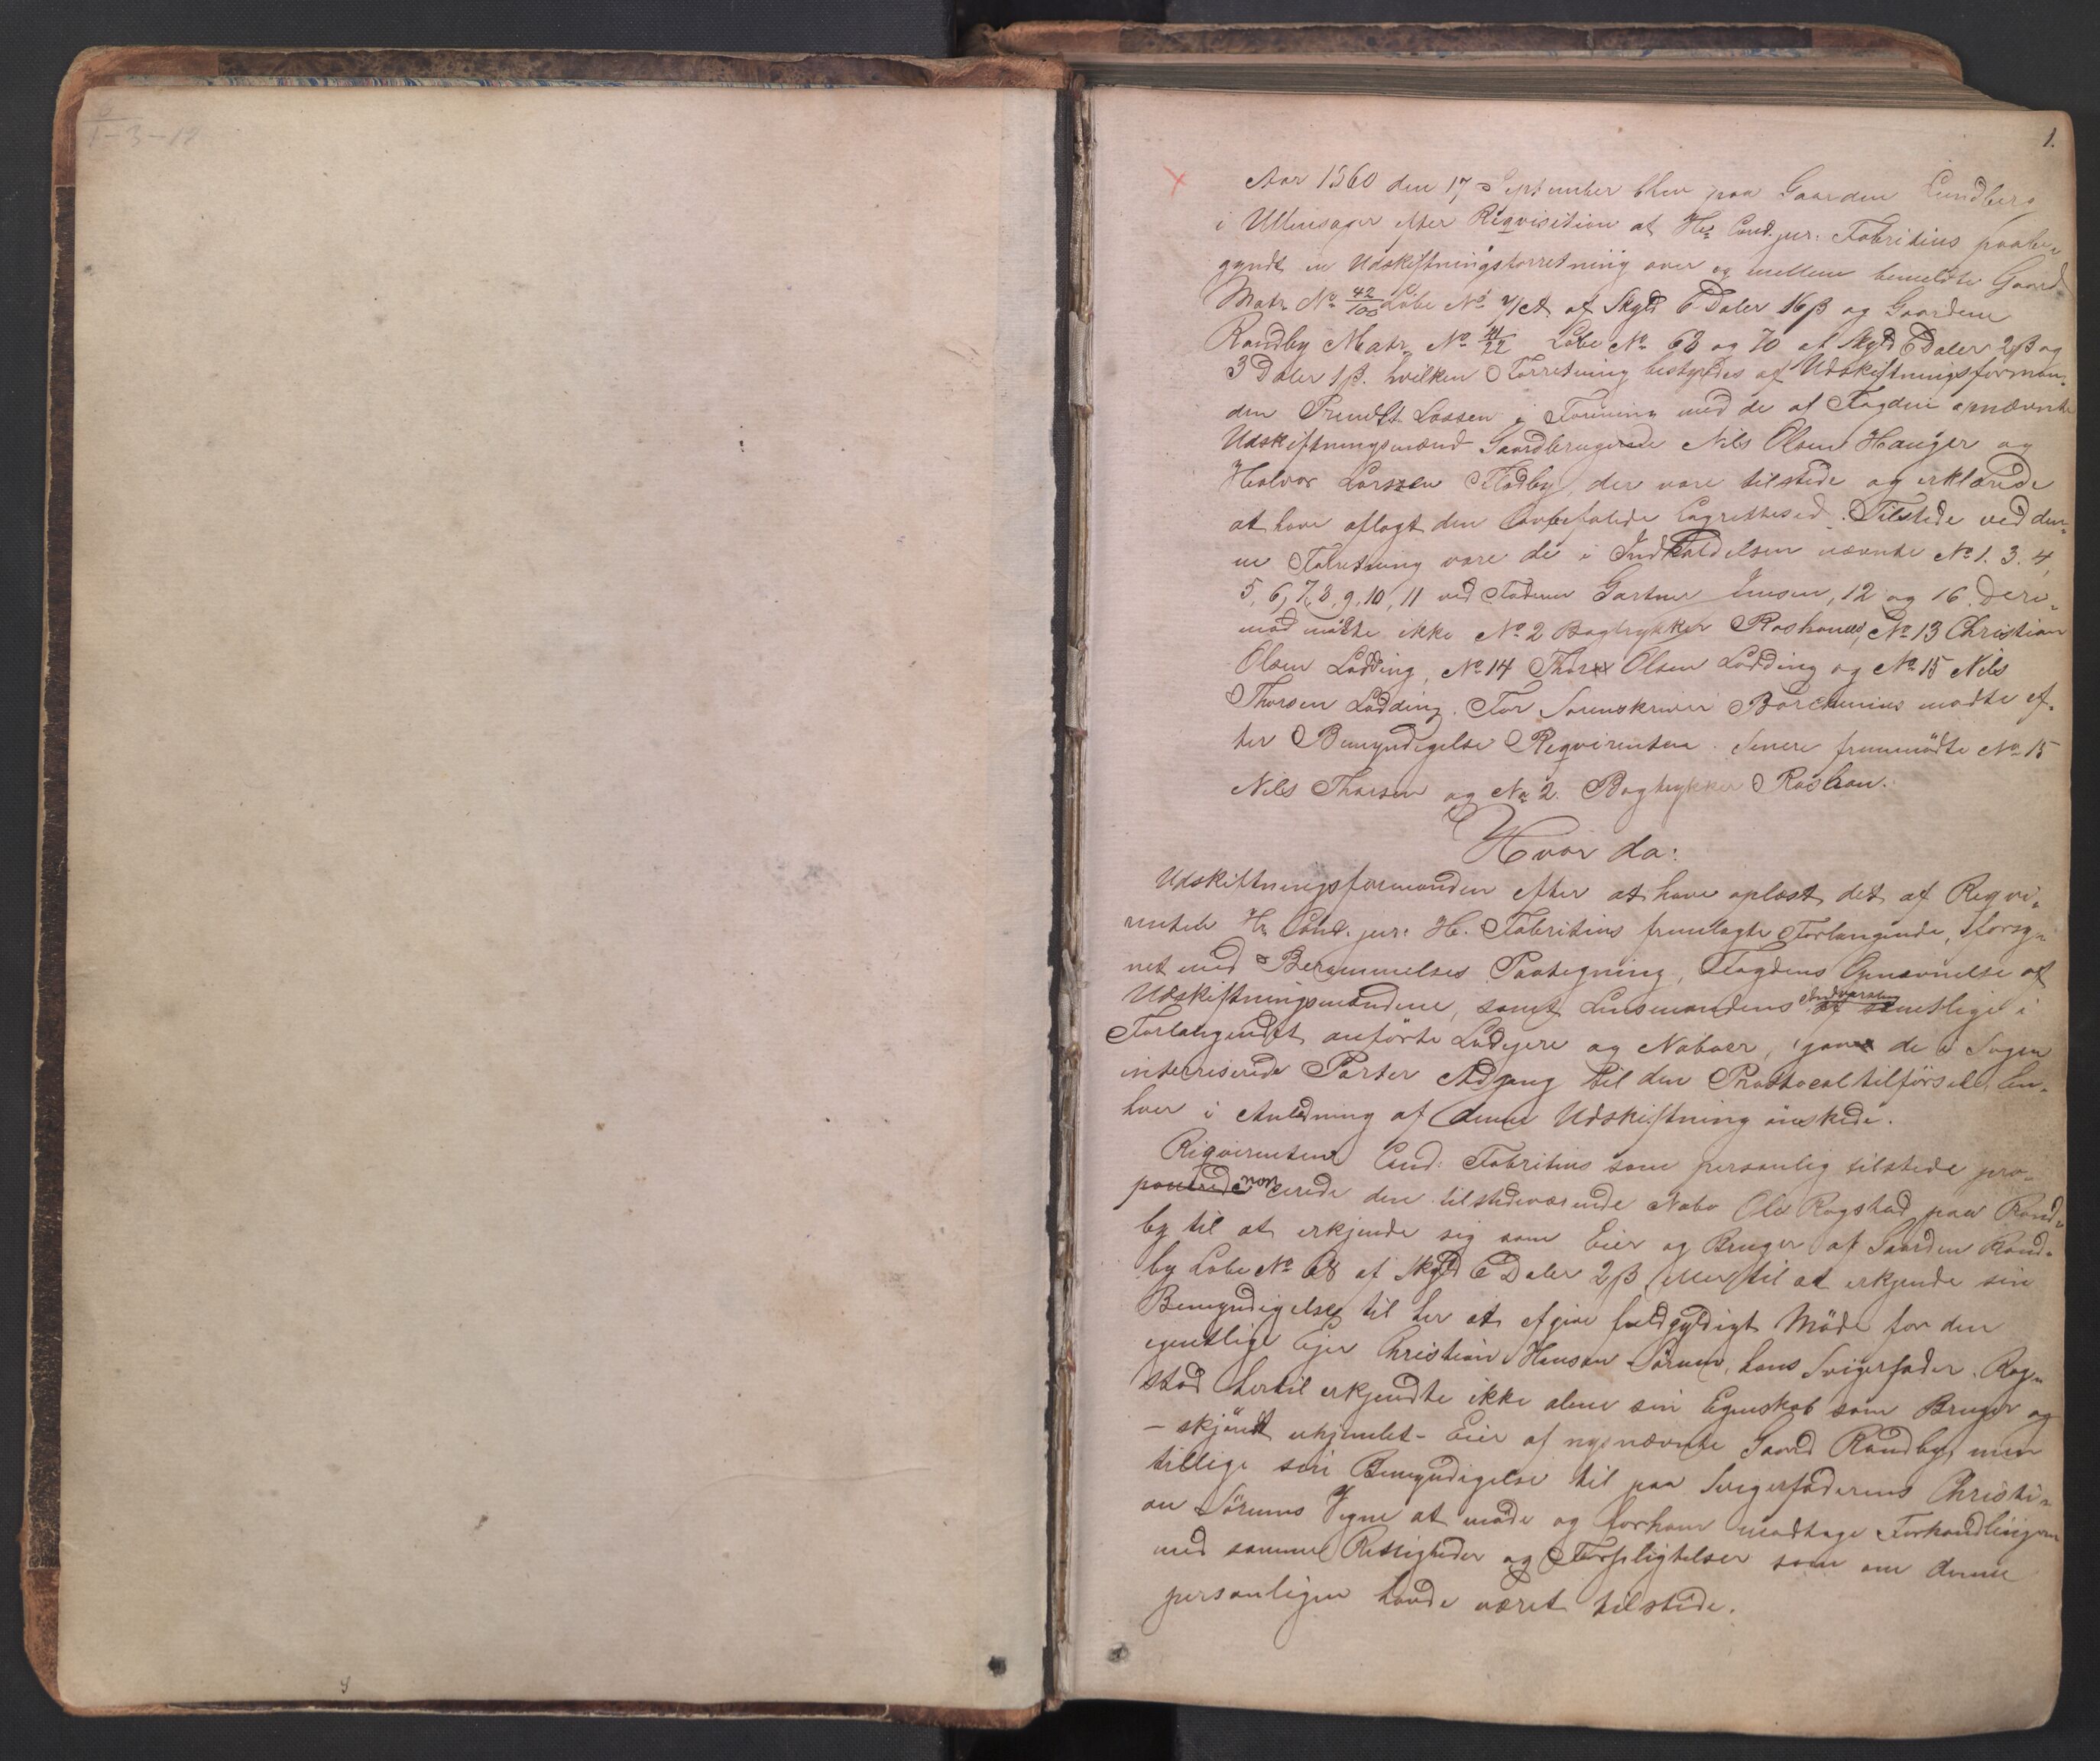 1-3-12
1.
Aar 1860 den 17 September blev paa Gaarden Lundberg
i Ullensager efter Reqvisition af Hr. Cand. jur. Fabritius paabe„
gyndt en Udskiftningsforretning over og mellem bemeldte Gaard
Matr No 42/100 Løbe No 71ct. af Skyld 6 Daler 16 β og Gaardene
Randby Matr. No 41/22 Løbe No 68 og 70 af Skyld 6 Daler 2 β og
3 Daler 1 β. hvilken Forretning bestyredes af Udskiftningsforman„
den Lassen i Forening med de af Fogden opnævnte
Udskiftningsmænd Gaardbrugerne Nils Olsen Hauger og
Halvor Larssen Fladby, der vare tilstede og erklærede
at have aflagt den lovbefalede Lagrettesed. Tilstede ved den„
ne Forretning vare de i Indkaldelsen nævnte No 1. 3. 4,
5, 6, 7, 8, 9, 10, 11 ved Faderen Gartner Jensen, 12 og 16. Deri„
mod mødte ikke No 2 Bogtrykker Roshauw, No 13 Christian
Olsen Lødding, No 14 Thor Olsen Lødding og No 15 Nils
Thorsen Lødding. For Sorenskriver Borchenius mødte ef„
ter Bemyndigelse Reqvirenten. Senere fremmødte No 15
Nils Thorsen og No 2. Bogtrykker Roshau.
Hvor da:
Udskiftningsformanden efter at have oplæst det af Reqvi„
renten Hr Cand. jur. H. Fabritius fremlagte Forlangende, forsy„
net med Berammelses Paategning, Fogdens Opnævnelse af
Udskiftningsmændene, samt Lensmandens Indvarsling af samtlige i
Forlangendet anførte Lodejere og Naboer, gav de i Sagen
interriserede Parter Adgang til den Prostocaltilførsel, En„
hver i Anledning af denne Udskiftning ønskede.
Reqvirenten Cand: Fabritius som personlig tilstede pro„
ponerede nonserede den tilstedeværende Nabo Ole Rogstad paa Rand„
by til at erkjende sig som Eier og Bruger af Gaarden Rand„
by Løbe No 68 af Skyld 6 Daler 2 β eller til at erkjende sin
Bemyndigelse til her at afgive fuldgyldigt Møde for den
egentlige Ejer Christian Hansen Sørum, hans Svigerfader. Rog„
stad hertil erkjendte ikke alene sin Egenskab som Bruger og
– skjøndt uhjemlet – Eier af nysnævnte Gaard Randby, men
tillige sin Bemyndigelse til paa Svigerfaderens Christi„
an Sørums Vegne at møde og for ham modtage Forhandlingen
med samme Rettigheder og Forpligtelser som om denne
personligen havde været tilstede.